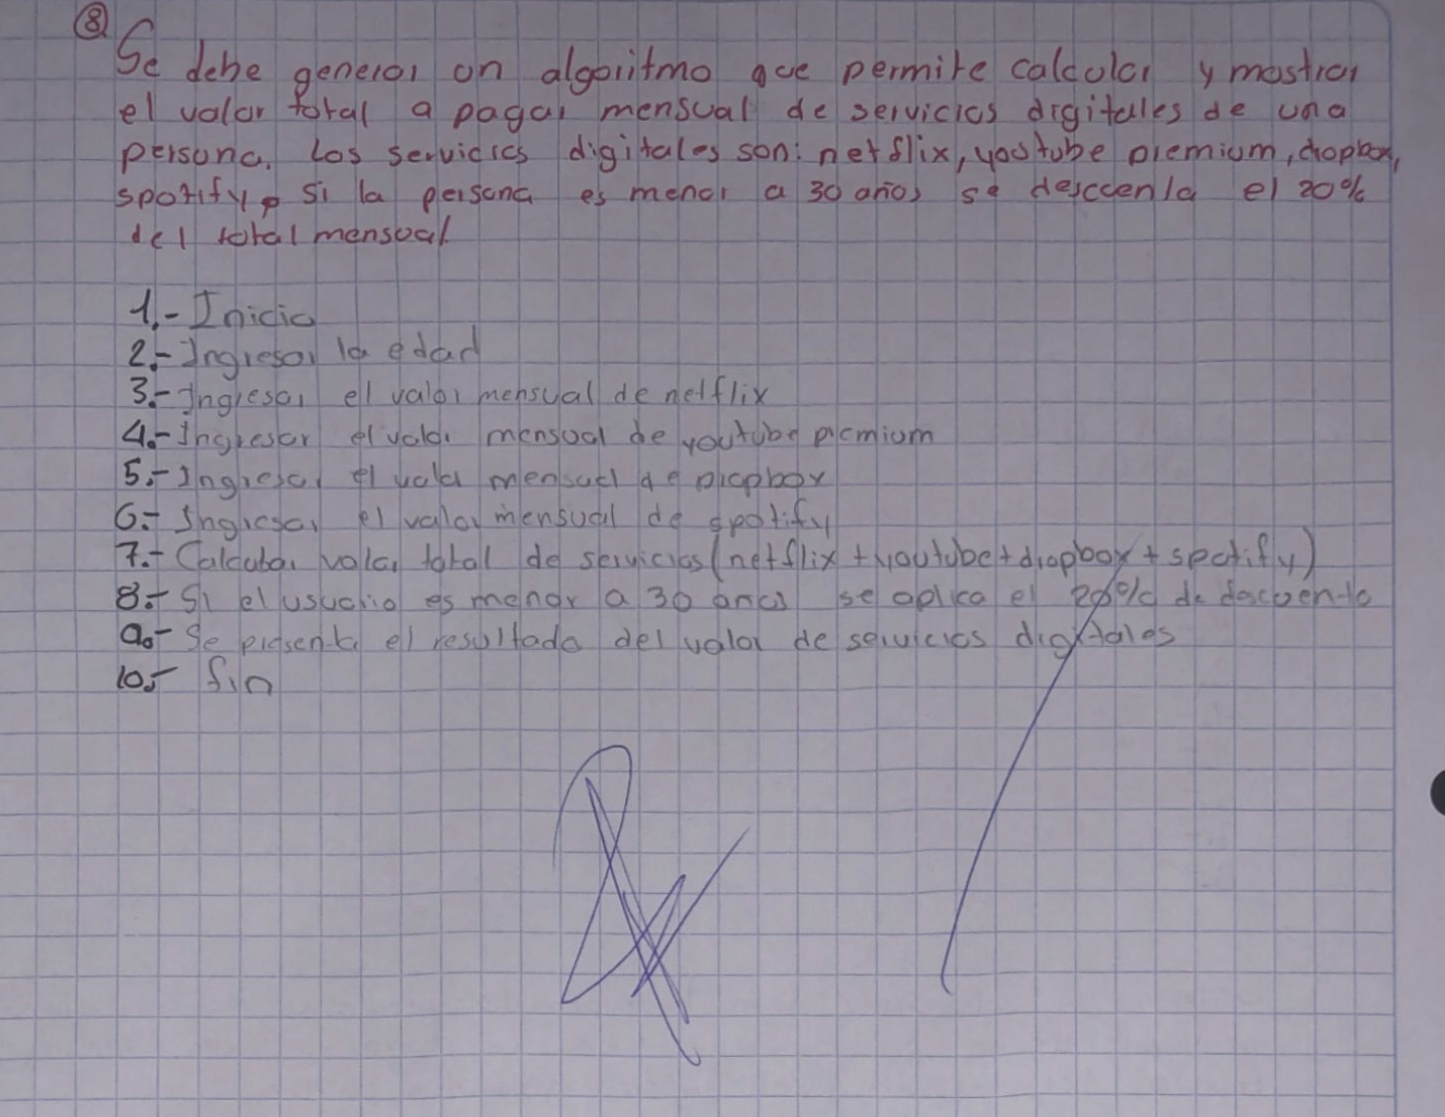 ⑧
Se debe generar un algoritmo que permite calcular y mostrar
el valor total a pagar mensual de servicios digitales de una
persona. Los servicios digitales son: netflix, youtube premium, dropbox,
spotify, si la persona es menor a 30 años se descuenta el 20%
del total mensual
1.- Inicio
2.- Ingresar la edad
3.- Ingresar el valor mensual de netflix
4.- Ingresar el valor mensual de youtube premium
5.- Ingresar el valor mensual de Dropbox
6.- Ingresar el valor mensual de spotify
7.- Calcular valor total de servicios (netflix + youtube + dropbox + spotify)
8.- Si el usuario es menor a 30 años se aplica el 20% de descuento
9.- Se presenta el resultado del valor de servicios digitales
10.- fin